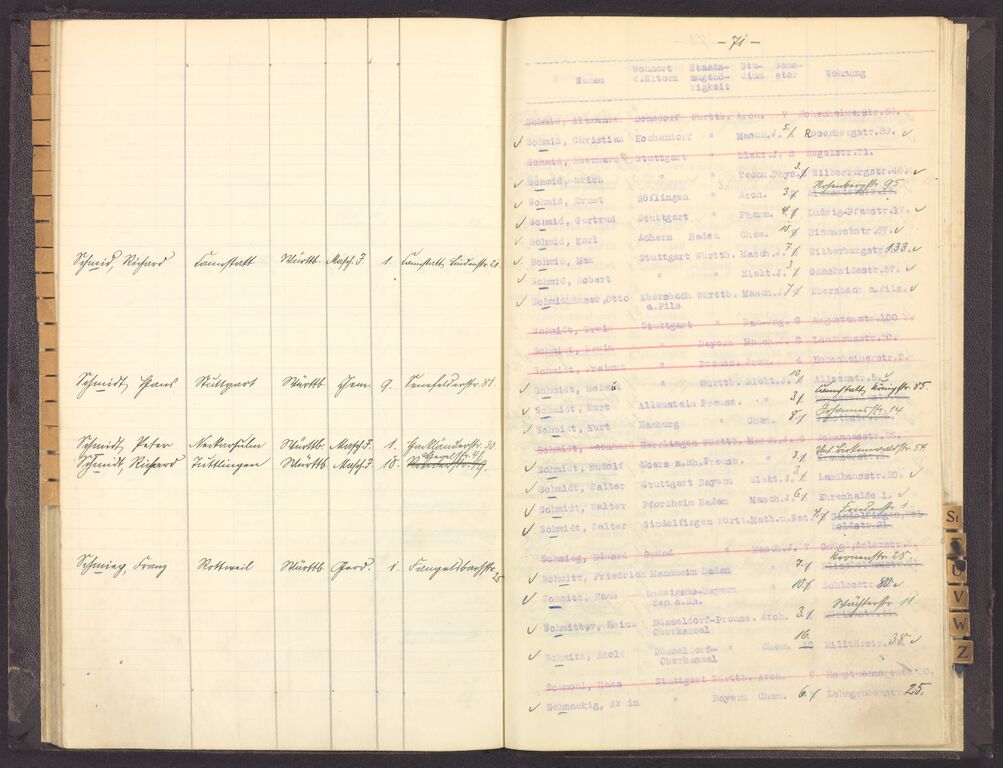 Schmid, Richard Cannstatt Württb. Masch.J. 1. Cannstatt, Lindenstr. 21
Schmidt, Hans Stuttgart Württb. Chem. 9. Senefelderstr. 81.
Schmidt, Peter Neckarsulm Württb. Masch.J. 1. Hackländerstr. 30
Schmidt, Richard Tuttlingen Württb. Masch.J. 18. Hegelstr. 41
Schmieg, Franz Rottweil Württb. Geod. 1. Fangelsbachstr. 25
- 71 -
Namen Wohnort d.Eltern Staats-angehö-rigkeit Stu-dium Semes-ter Wohnung
Schmid, Donsdorf Württb. Arch. 9 Hohenheimerstr.
Schmid, Christian Kochendorf " Masch.J. 5. Rosenbergstr.89.
Schmid, Eberhard Stuttgart " Elekt.J. 8 Hegelstr.21.
Schmid, Erich " " Techn.Phys. 3. Silberburgstr.
Schmid, Ernst Söflingen " Arch. 3. Rosenbergstr. 95
Schmid, Gertrud Stuttgart " Pharm. 4. Ludwig-Pfaustr.17.
Schmid, Karl Achern Baden Chem. 10. Bismarckstr.67.
Schmid, Max Stuttgart Württb. Masch.J. 7. Silberburgstr.133.
Schmid, Robert " " Elekt.J. 3. Gänsheidestr.57.
Schmidhäuser, Otto Ebersbach Württb. Masch.J. 7. Ebersbach a.Fils.
a.Fils
Schmidt, Erwin Stuttgart " Bau-Ing. 8 Augustenstr.100
Schmidt, Erwin " Bayern Masch.J. 8 Landhausstr.
Schmidt, " Preuss. Arch. 4 Hohenheimerstr.
Schmidt, Helmut " Württb. Elekt.J. 10. Alleenstr.5.
Schmidt, Kurt Allenstein Preuss. " " 3. Cannstatt, Königstr. 85.
Schmidt, Kurt Hamburg " Chem. 8. Johannesstr. 14
Schmidt, Leonhard Herrlingen Württb. Masch.J. 8 Johannesstr.
Schmidt, Rudolf Moers a.Rh. Preuss. " 3. Birkenwaldstr. 54.
Schmidt, Walter Stuttgart Bayern Elekt.J. 3. Landhausstr.20.
Schmidt, Walter Pforzheim Baden Masch.J. 6. Ehrenhalde 1.
Schmidt, Walter Sindelfingen Württ. Math.u.Nat. 4.
Schmieg, Eduard Gmünd " Masch.J. 7 Gmünd,
Schmitt, Friedrich Mannheim Baden " 7. Kronenstr. 28.
Schmitt, Hans Ludwigsha-Bayern " 10. Schlosstr.80.
fen a.Rh.
Schmitter, Heinz Düsseldorf-Preuss. Arch. 3. Wächterstr. 11
Oberkassel
Schmitz, Adolf Düsseldorf- " Chem. 16. Militärstr.38.
Oberkassel
Schmohl, Hans Stuttgart Württb. Arch. 9 Hauptmannsreute
Schnackig, Armin " Bayern Chem. 6. Lehrgrubenstr.25.
St
U
V
W
Z